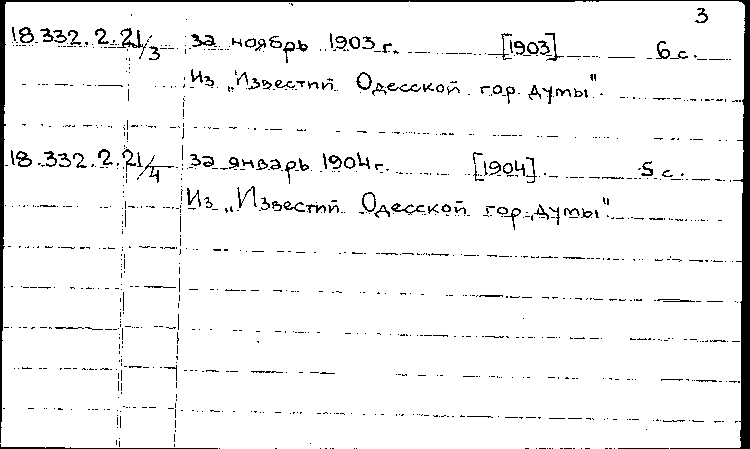 3
18.332.2.21/3 за ноябрь 1903 г. [1903] 6 с.
Из „Известий Одесской гор. думы".
18.332.2.21/4 за январь 1904 г. [1904] 5 с.
Из „Известий Одесской гор. думы"